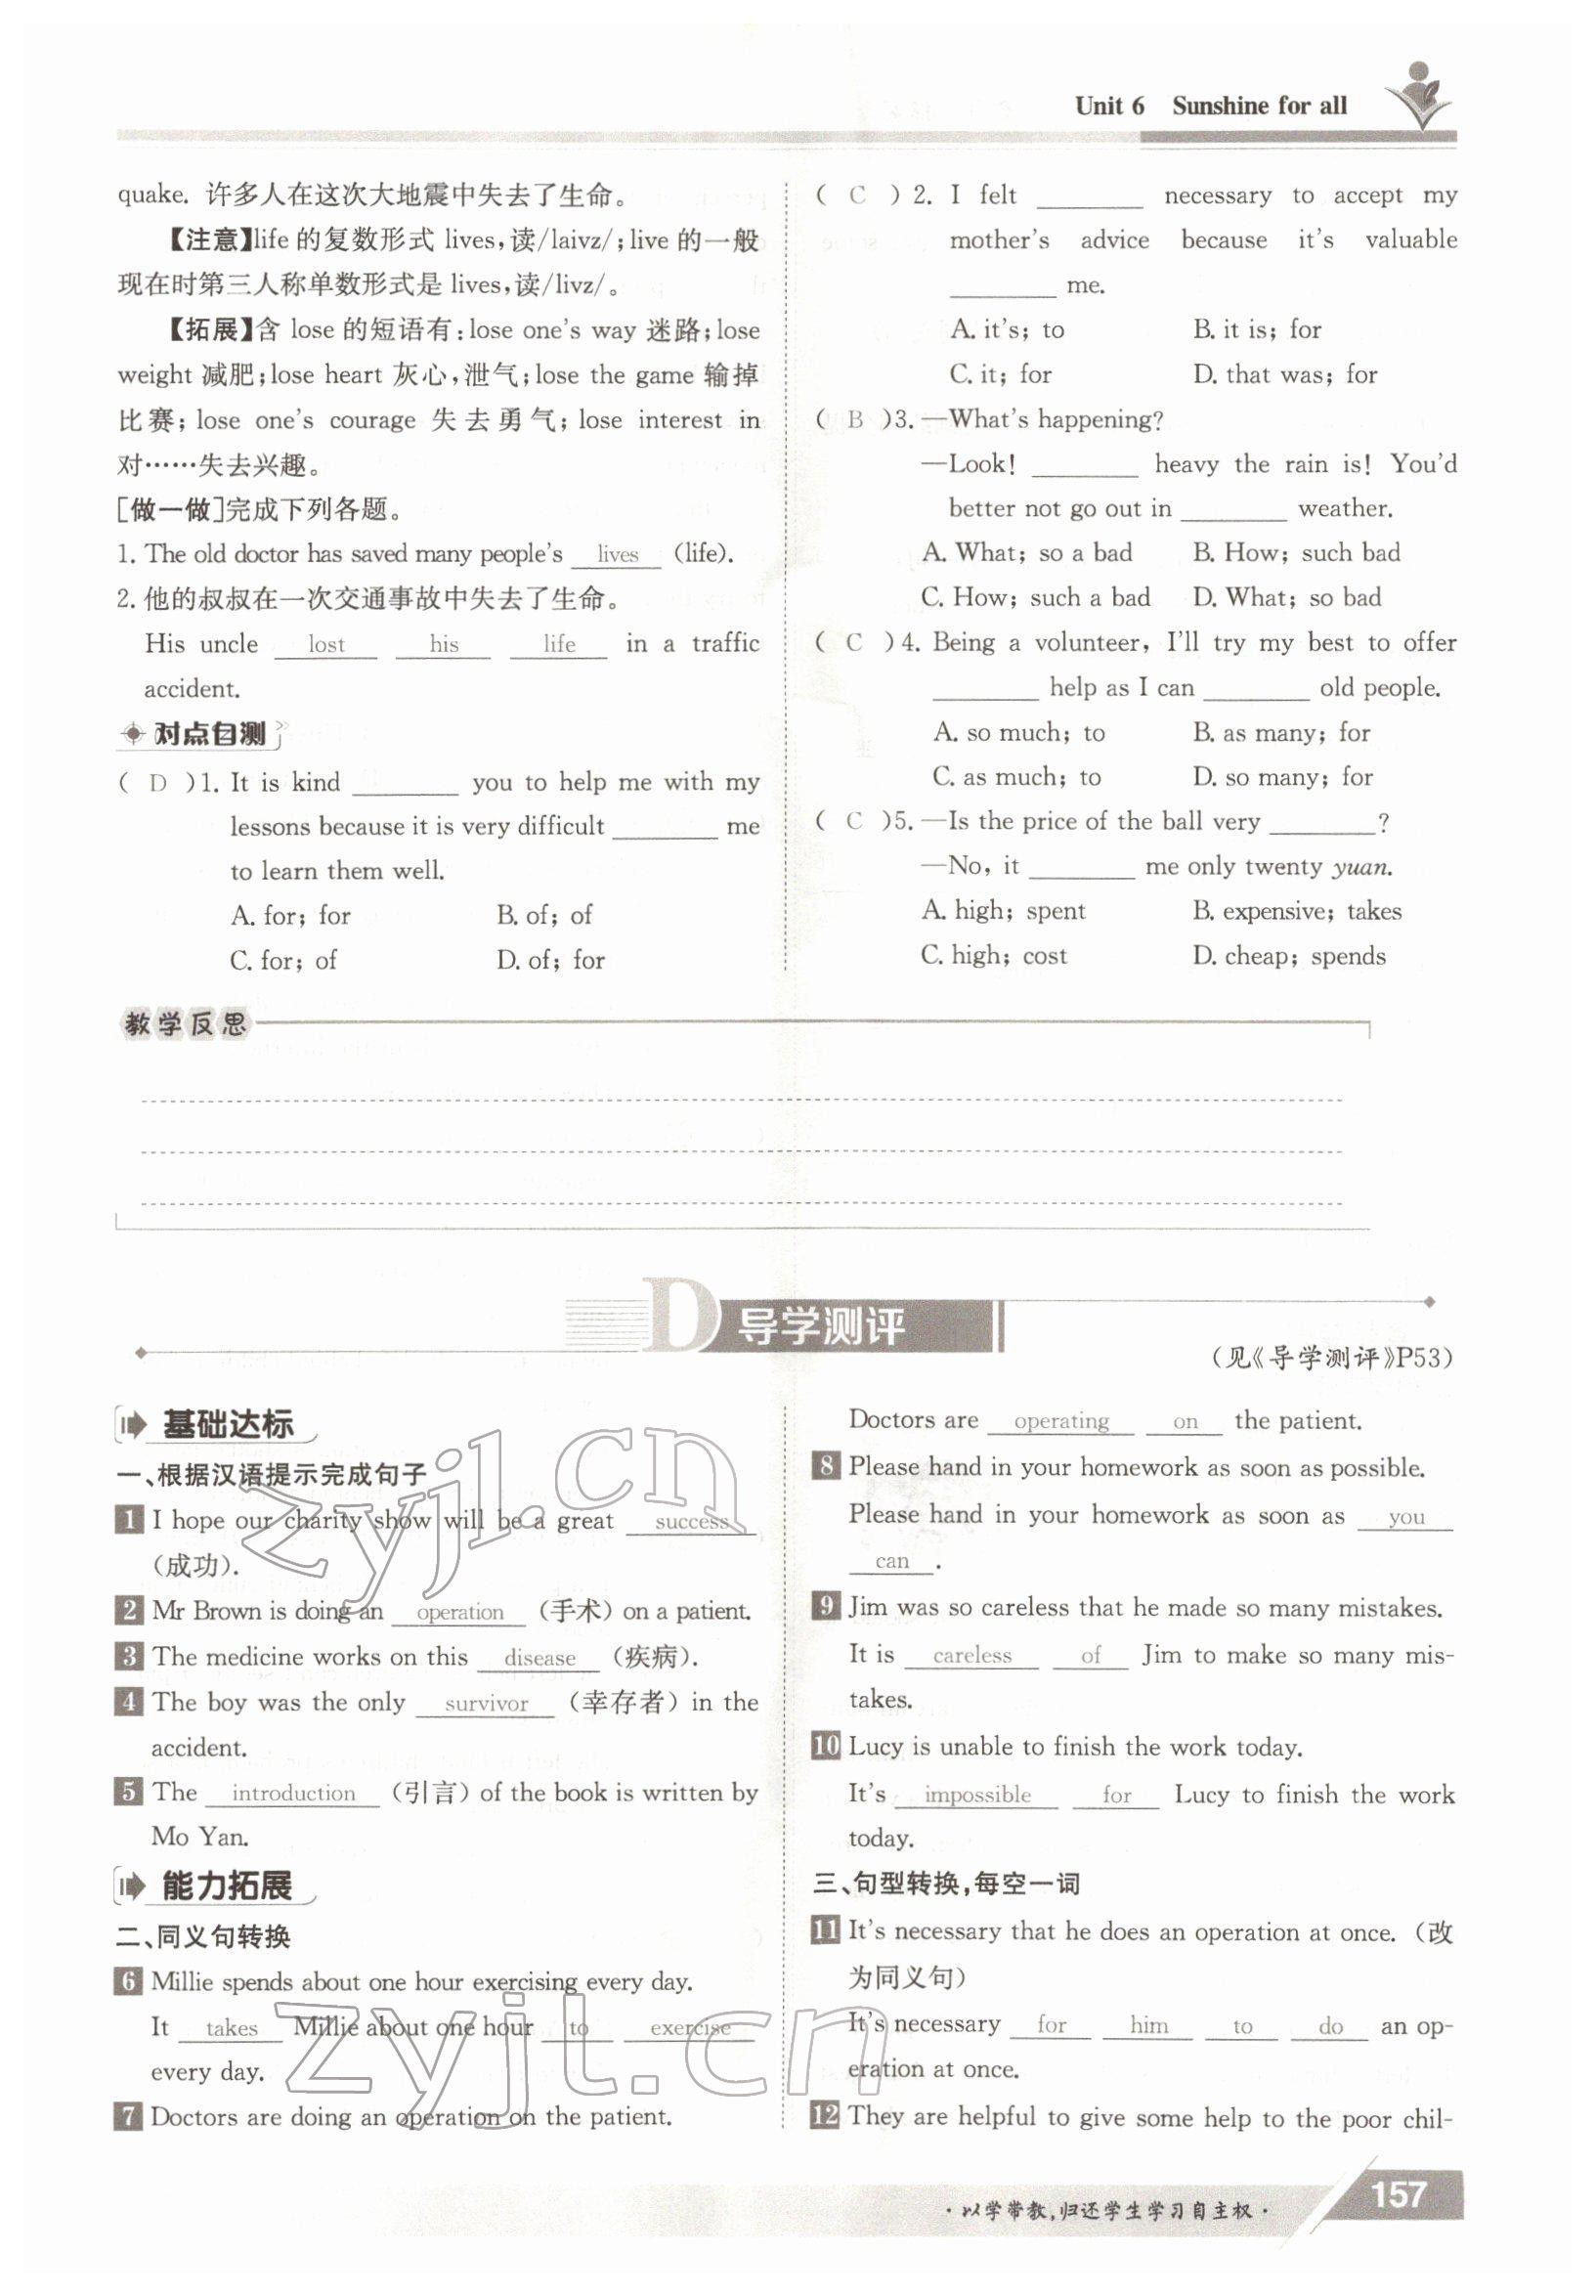 Unit 6 Sunshine for all
quake. 许多人在这次大地震中失去了生命。
【注意】life 的复数形式 lives,读/laivz/;live 的一般
现在时第三人称单数形式是 lives,读/livz/。
【拓展】含 lose 的短语有:lose one's way 迷路;lose
weight 减肥;lose heart 灰心,泄气;lose the game 输掉
比赛; lose one's courage 失去勇气; lose interest in
对……失去兴趣。
[做一做]完成下列各题。
1. The old doctor has saved many people's lives (life).
2. 他的叔叔在一次交通事故中失去了生命。
His uncle lost his life in a traffic
accident.
对点自测
( D )1. It is kind ________ you to help me with my
lessons because it is very difficult ________ me
to learn them well.
A. for; for B. of; of
C. for; of D. of; for
( C )2. I felt ________ necessary to accept my
mother's advice because it's valuable
________ me.
A. it's; to B. it is; for
C. it; for D. that was; for
( B )3. —What's happening?
—Look! ________ heavy the rain is! You'd
better not go out in ________ weather.
A. What; so a bad B. How; such bad
C. How; such a bad D. What; so bad
( C )4. Being a volunteer, I'll try my best to offer
________ help as I can ________ old people.
A. so much; to B. as many; for
C. as much; to D. so many; for
( C )5. —Is the price of the ball very ________?
—No, it ________ me only twenty yuan.
A. high; spent B. expensive; takes
C. high; cost D. cheap; spends
教学反思
D 导学测评
(见《导学测评》P53)
基础达标
一、根据汉语提示完成句子
1 I hope our charity show will be a great success
(成功).
2 Mr Brown is doing an operation (手术) on a patient.
3 The medicine works on this disease (疾病).
4 The boy was the only survivor (幸存者) in the
accident.
5 The introduction (引言) of the book is written by
Mo Yan.
能力拓展
二、同义句转换
6 Millie spends about one hour exercising every day.
It takes Millie about one hour to exercise
every day.
7 Doctors are doing an operation on the patient.
Doctors are operating on the patient.
8 Please hand in your homework as soon as possible.
Please hand in your homework as soon as you
can .
9 Jim was so careless that he made so many mistakes.
It is careless of Jim to make so many mis-
takes.
10 Lucy is unable to finish the work today.
It's impossible for Lucy to finish the work
today.
三、句型转换,每空一词
11 It's necessary that he does an operation at once. (改
为同义句)
It's necessary for him to do an op-
eration at once.
12 They are helpful to give some help to the poor chil-
zyjl.cn
zyjl.cn
·以学带教,归还学生学习自主权·
157